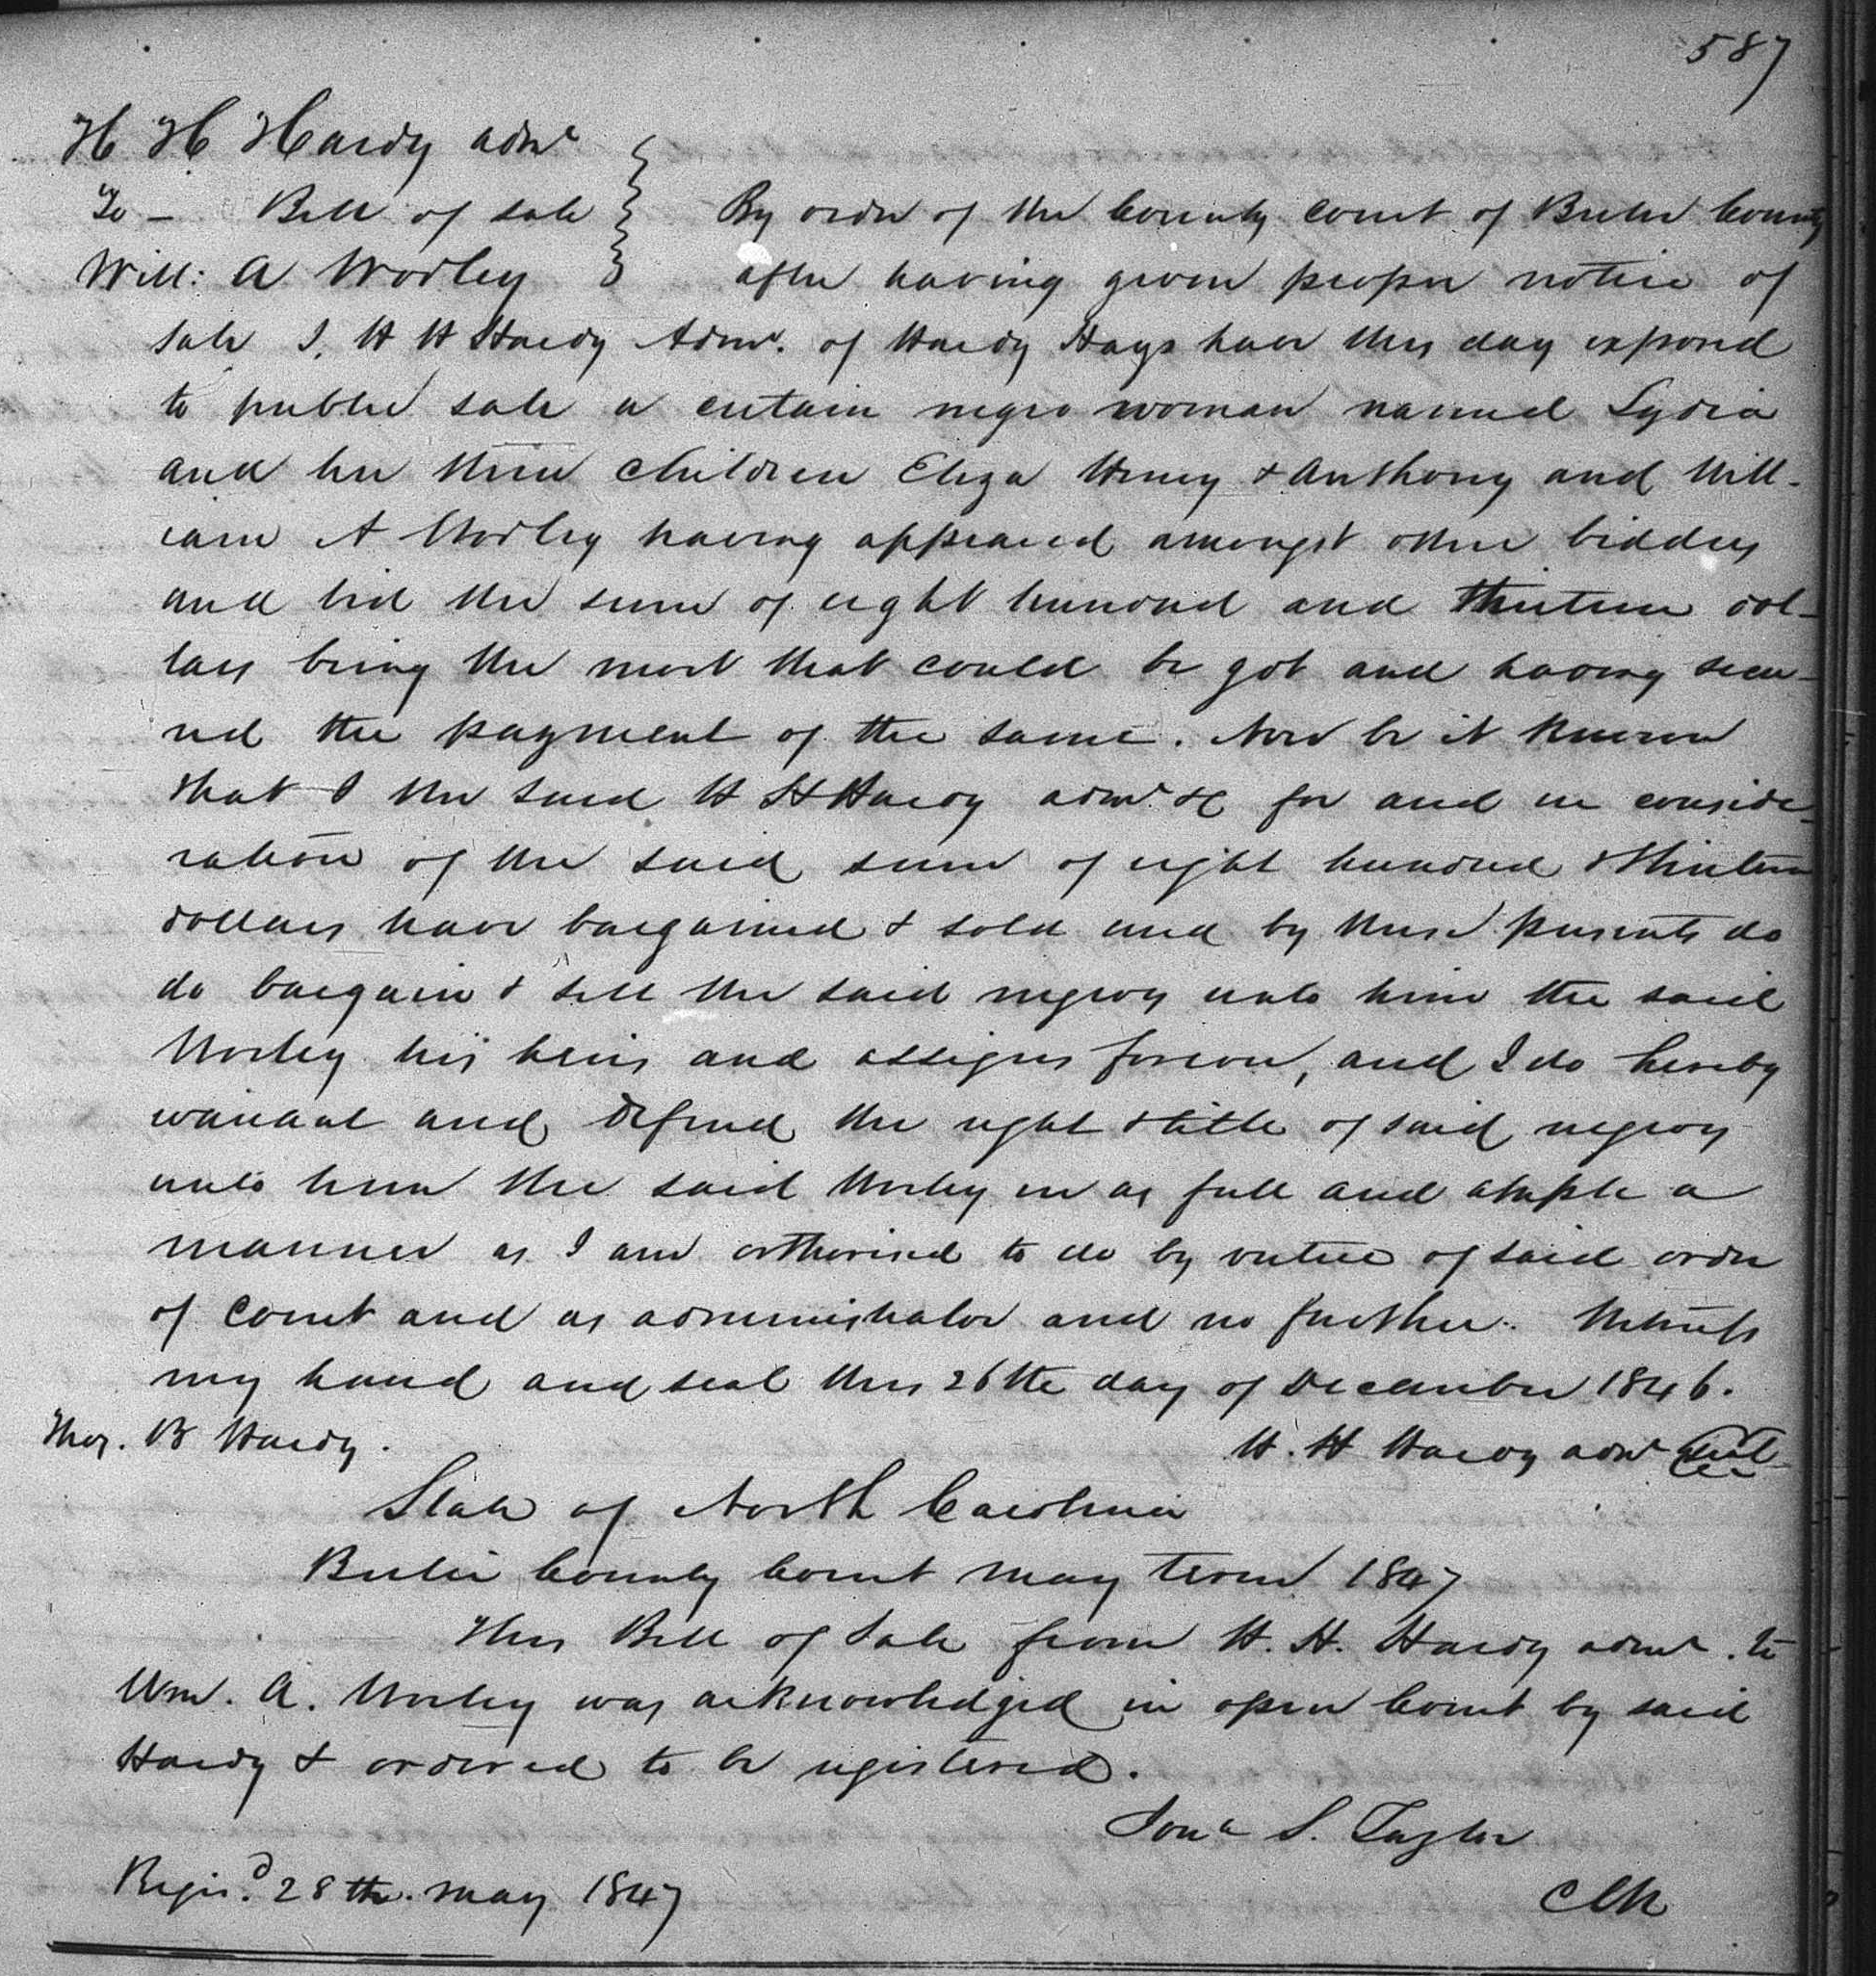 587
H H Hardy admr
To - Bill of sale } By order of the County Court of Bertie County
Will: A Worley } after having given proper notice of
sale I, H H Hardy Admr. of Hardy Hays have this day exposed
to public sale a certain negro woman named Lydia
and her three children Eliza Henry & Anthony and Will-
iam A Worley having appeared amongst other bidders
and bid the sum of eight hundred and thirteen dol-
lars being the most that could be got and having secu-
red the payment of the same. Now be it known
that I the said H H Hardy admr. &c for and in conside-
ration of the said sum of eight hundred & thirteen
dollars have bargained & sold and by these presents do
do bargain & sell the said negroes unto him the said
Worley his heirs and assigns forever, and I do hereby
warrant and defend the right & title of said negroes
unto him the said Worley in as full and ample a
manner as I am orthorised to do by virtue of said order
of Court and as administrator and no further. Witness
my hand and seal this 26th day of December 1846.
Thos. B Hardy. H. H Hardy admr Seal
State of North Carolina
Bertie County Court May Term 1847
This Bill of Sale from H. H. Hardy admr. to
Wm. A. Worley was acknowledged in open Court by said
Hardy & ordered to be registered.
Jona S. Taylor
Regis.d 28th. May 1847 Clk